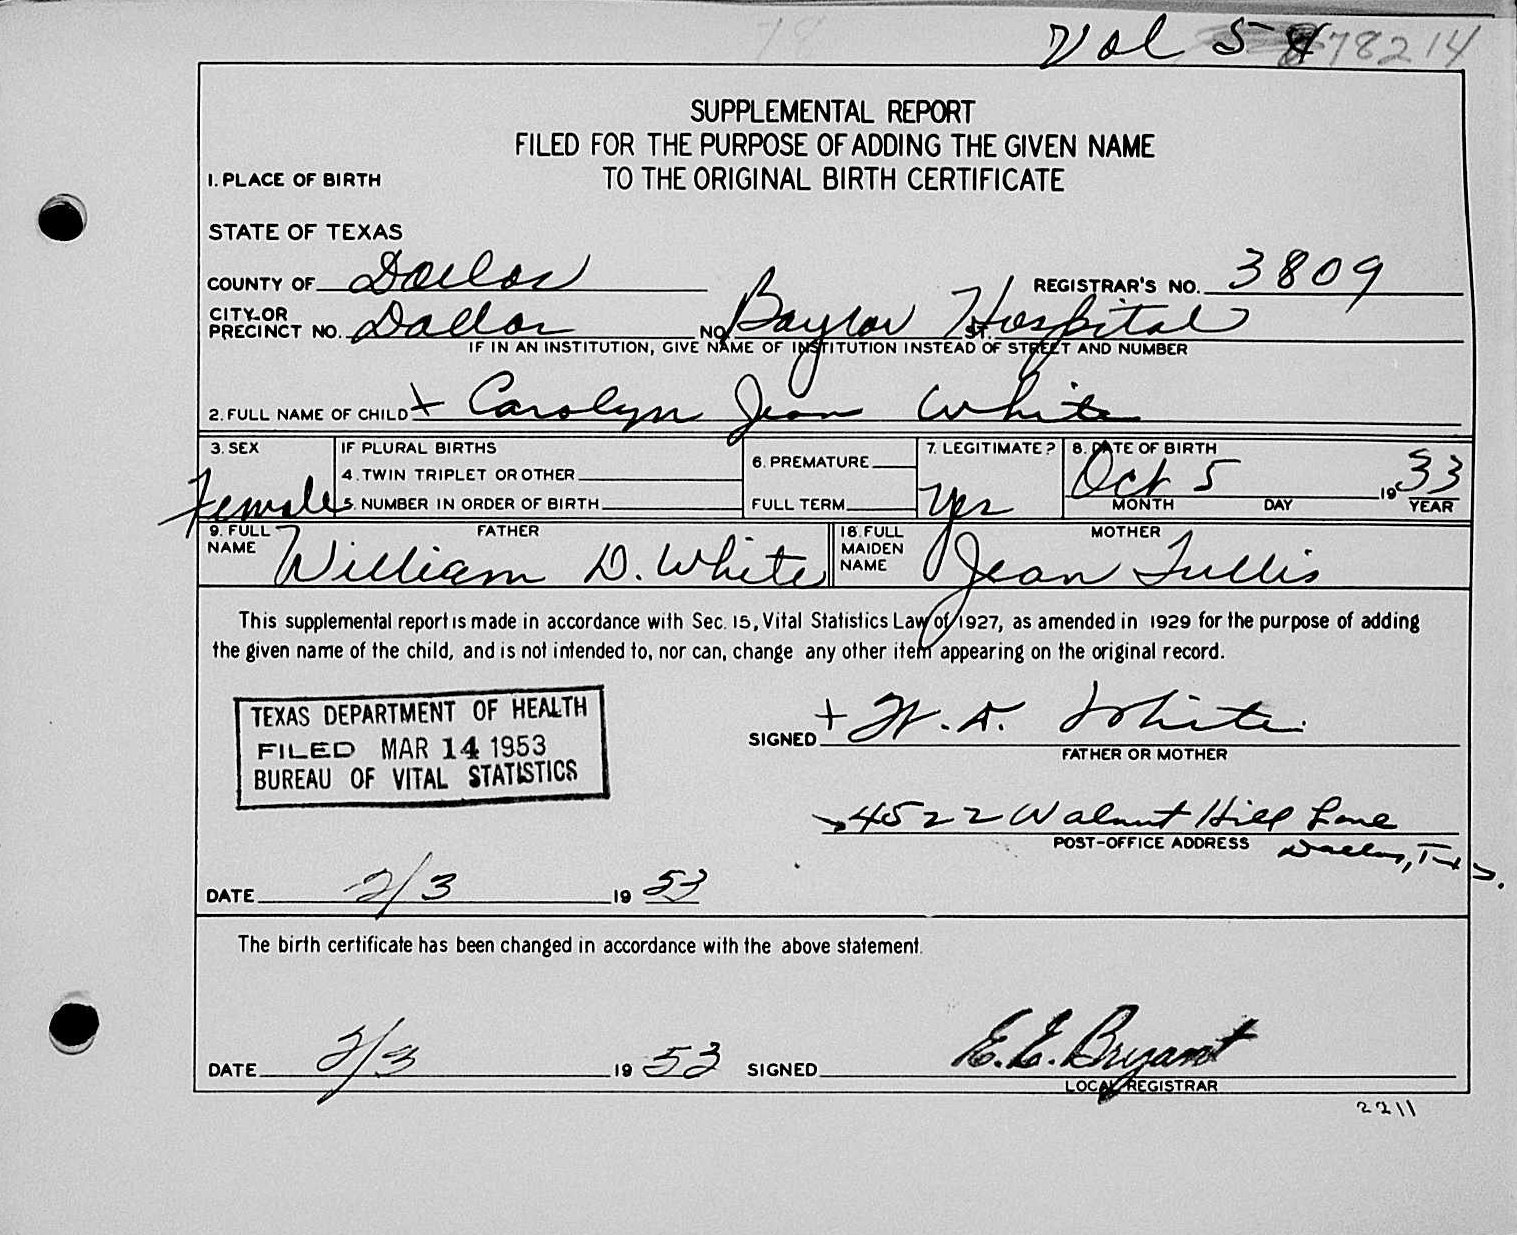 Vol 54 78214
SUPPLEMENTAL REPORT
FILED FOR THE PURPOSE OF ADDING THE GIVEN NAME
TO THE ORIGINAL BIRTH CERTIFICATE
1. PLACE OF BIRTH
STATE OF TEXAS
COUNTY OF Dallas REGISTRAR'S NO. 3809
CITY OR
PRECINCT NO. Dallas NO. Baylor Hospital ST.
IF IN AN INSTITUTION, GIVE NAME OF INSTITUTION INSTEAD OF STREET AND NUMBER
2. FULL NAME OF CHILD + Carolyn Jean White
3. SEX IF PLURAL BIRTHS 7. LEGITIMATE? 8. DATE OF BIRTH
4. TWIN TRIPLET OR OTHER 6. PREMATURE
Female 5. NUMBER IN ORDER OF BIRTH FULL TERM Yes Oct 5 1933
MONTH DAY YEAR
9. FULL NAME FATHER William D. White 18. FULL MAIDEN NAME MOTHER Jean Tullis
This supplemental report is made in accordance with Sec. 15, Vital Statistics Law of 1927, as amended in 1929 for the purpose of adding
the given name of the child, and is not intended to, nor can, change any other item appearing on the original record.
TEXAS DEPARTMENT OF HEALTH
FILED MAR 14 1953
BUREAU OF VITAL STATISTICS
SIGNED + W. D. White
FATHER OR MOTHER
4522 Walnut Hill Lane
POST-OFFICE ADDRESS Dallas, Tex
DATE 2/3 1953
The birth certificate has been changed in accordance with the above statement.
DATE 2/3 1953 SIGNED E. E. Bryant
LOCAL REGISTRAR
2211